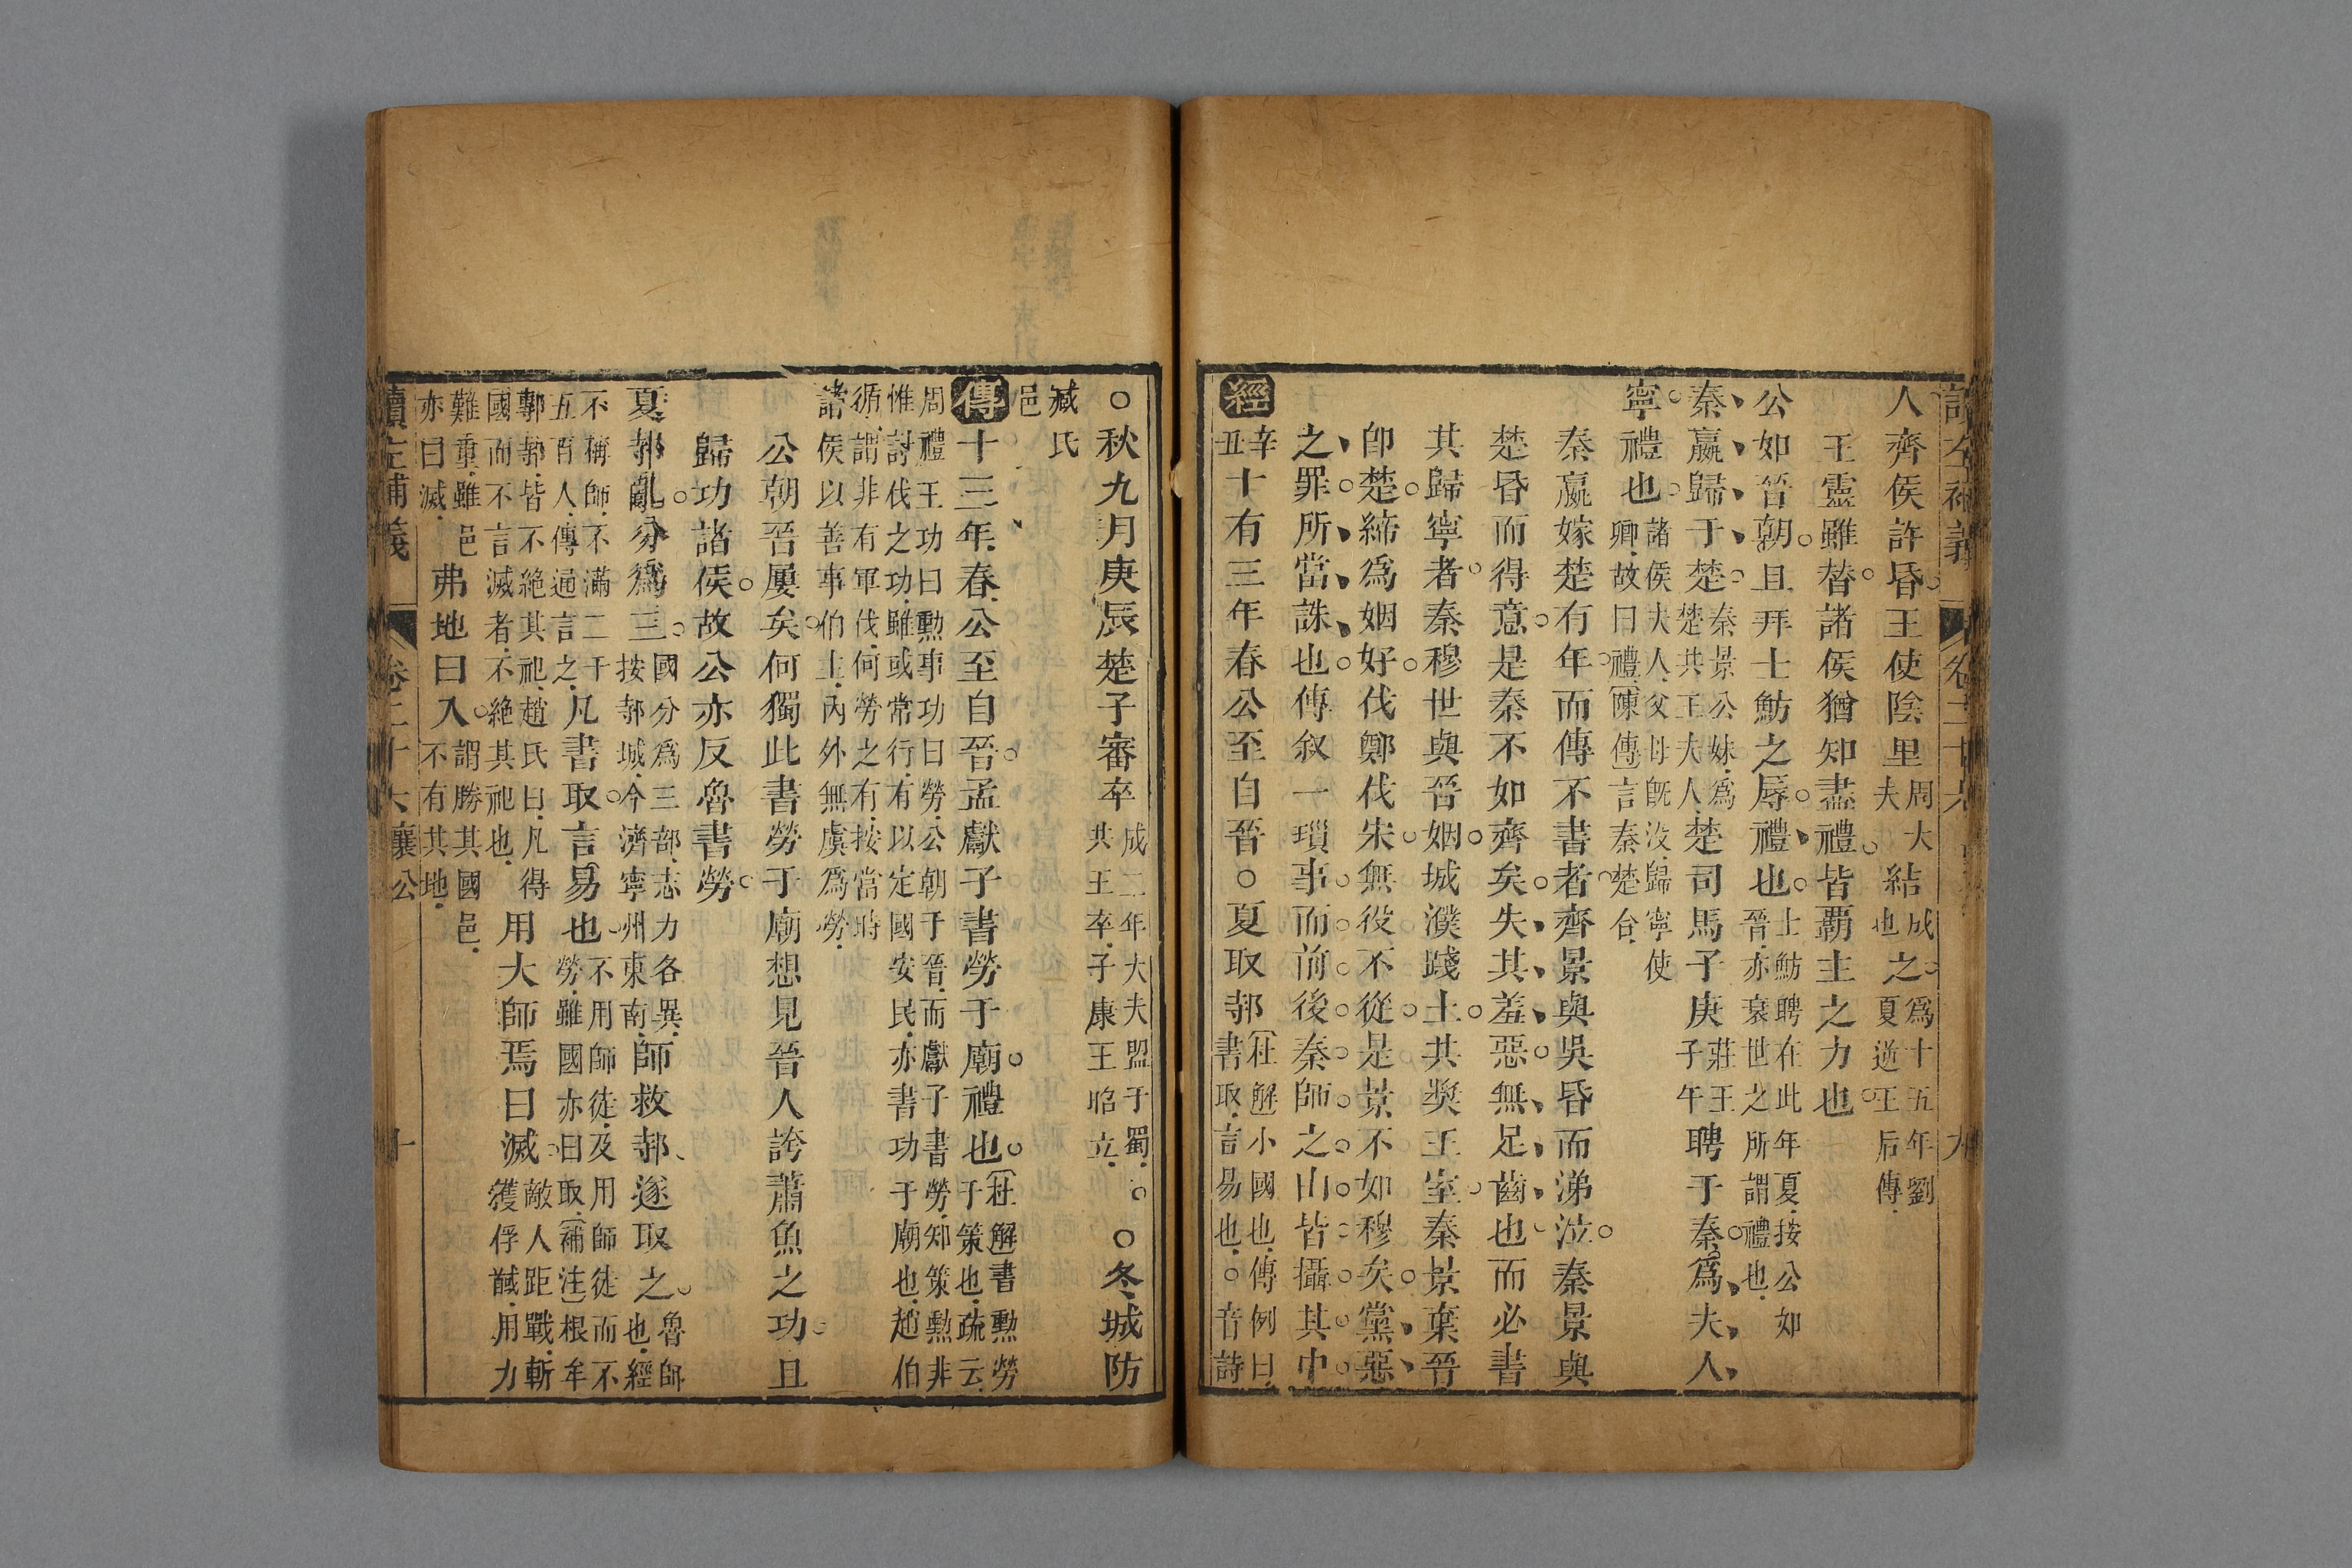 讀左補義 卷二十六 九
人齊侯許昏王使陰里周大夫結成也之爲十五年劉夏逆王后傳
王靈雖替諸侯猶知盡禮皆覇主之力也
公如晉朝且拜士魴之辱禮也士魴聘在此年夏按公如晉亦衰世之所謂禮也
秦嬴歸于楚秦景公妹爲楚共王夫人楚司馬子庚莊王子午聘于秦爲夫人
寧禮也諸侯夫人父母旣沒歸寧使卿故曰禮陳傳言秦楚合
秦嬴嫁楚有年而傳不書者齊景與吳昏而涕泣秦景與
楚昏而得意是秦不如齊矣失其羞惡無足齒也而必書
其歸寧者秦穆世與晉姻城濮踐土共奬王室秦景棄晉
卽楚締爲姻好伐鄭伐宋無役不從是景不如穆矣黨惡
之罪所當誅也傳叙一瑣事而前後秦師之出皆攝其中
經辛丑十有三年春公至自晉○夏取邿杜解小國也傳例曰書取言易也○音詩
○秋九月庚辰楚子審卒成二年大夫盟于蜀共王卒子康王昭立○○冬城防
臧氏邑
傳十三年春公至自晉孟獻子書勞于廟禮也杜解書勲勞于策也疏云
周禮王功曰勲事功曰勞公朝于晉而獻子書勞知策勲非
惟討伐之功雖或常行有以定國安民亦書功于廟也趙伯
循謂非有軍伐何勞之有按當時
諸侯以善事伯主內外無虞爲勞
公朝晉屢矣何獨此書勞于廟想見晉人誇蕭魚之功且
歸功諸侯故公亦反魯書勞
夏邿亂分爲三國分爲三部志力各異按邿城今濟寧州東南師救邿遂取之魯師也經
不稱師不滿二千五百人傳通言之凡書取言易也不用師徒及用師徒而不勞雖國亦曰取補注根牟
鄟邿皆不絕其祀趙氏曰凡得國而不言滅者不絕其祀也用大師焉曰滅敵人距戰斬獲俘馘用力
難重雖邑亦曰滅弗地曰入謂勝其國邑不有其地
讀左補義 卷二十六 襄公 十